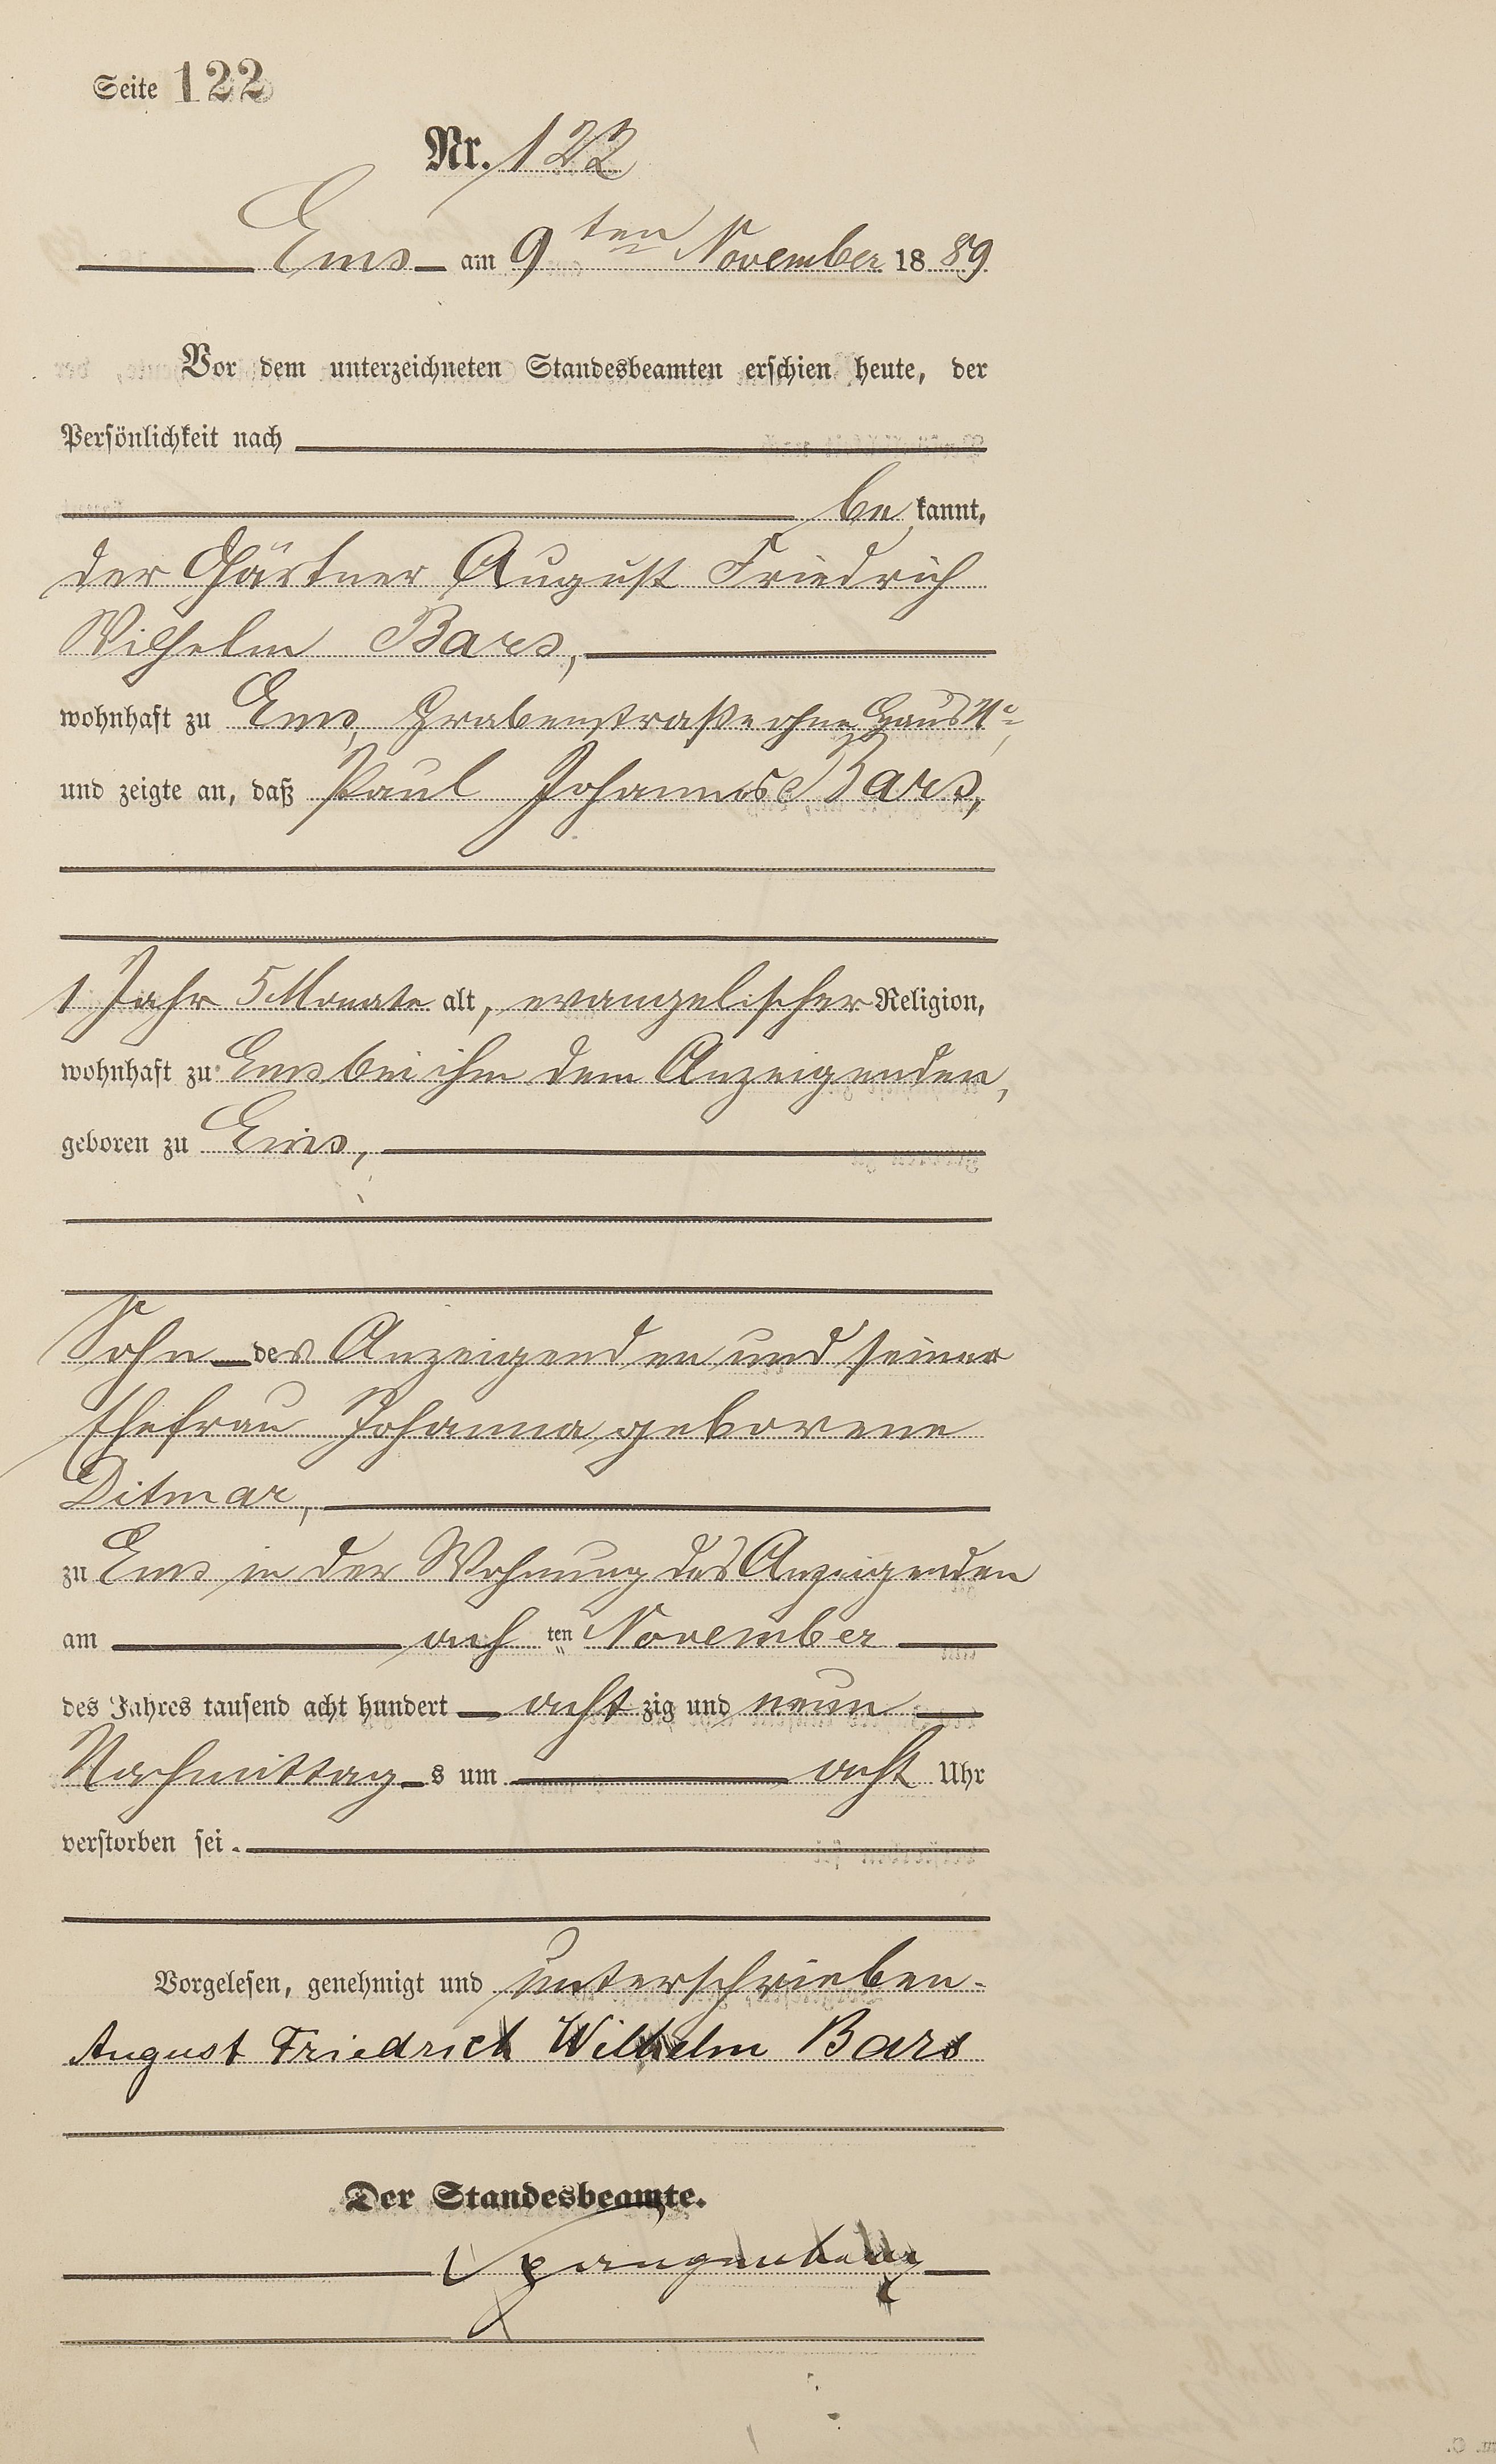 Seite 122
Nr. 122
Ems am 9ten November 1889
Vor dem unterzeichneten Standesbeamten erschien heute, der
Persönlichkeit nach
be kannt,
der Gärtner August Friedrich
Wilhelm Bars,
wohnhaft zu Ems, Grabenstraße ohne Haus No
und zeigte an, daß Paul Johannes Bars,
1 Jahr 5 Monate alt, evangelischer Religion,
wohnhaft zu Ems bei ihm dem Anzeigenden,
geboren zu Ems,
Sohn des Anzeigenden und seiner
Ehefrau Johanna geborene
Ditmar,
zu Ems in der Wohnung des Anzeigenden
am ach ten November
des Jahres tausend acht hundert acht zig und neun
Nachmittag s um acht Uhr
verstorben sei.
Vorgelesen, genehmigt und unterschrieben.
August Friedrich Wilhelm Bars
Der Standesbeamte.
Spangenberg